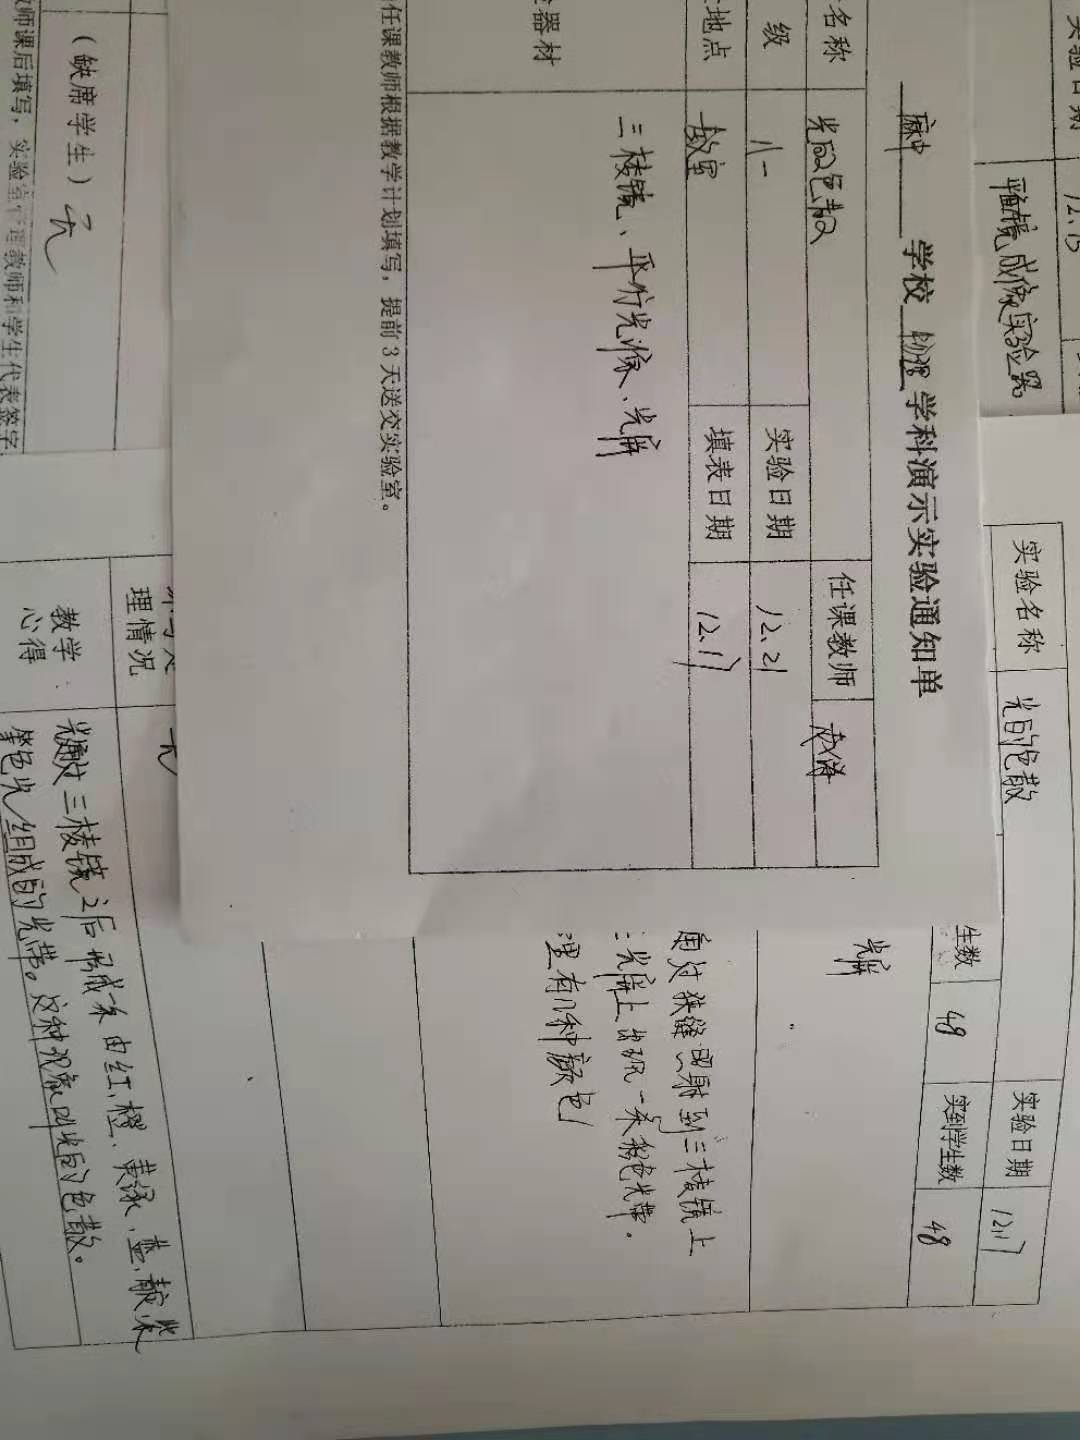 麻中 学校 物理 学科演示实验通知单
名称 光的色散 任课教师
级 八一 实验日期 12.21
地点 教室 填表日期 12.17
器材 三棱镜、平行光源、光屏
任课教师根据教学计划填写，提前3天送交实验室。
实验日期 12.15
平面镜成像实验器
实验名称 光的色散 实验日期 12.17
生数 48 实到学生数 48
光屏
通过狭缝照射到三棱镜上
光屏上出现一条彩色光带.
里有几种颜色
理情况 无
教学心得 光通过三棱镜之后形成一条由红、橙、黄、绿、蓝、靛、紫
等色光组成的光带。这种现象叫光的色散。
(缺席学生) 无
师课后填写，实验室管理教师和学生代表签字